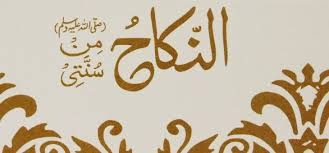 النِّكَاحُ مِنْ سُنَّتِيْ
(صلی اللہ علیہ وسلم)